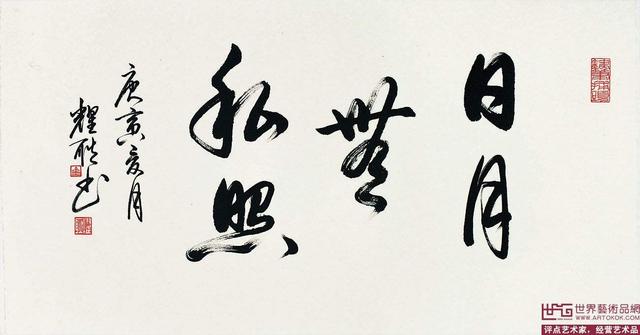 日月
無
私照
庚寅夏月
耀 书
世界藝術品網
WWW.ARTOKOK.COM
评点艺术家，经营艺术品